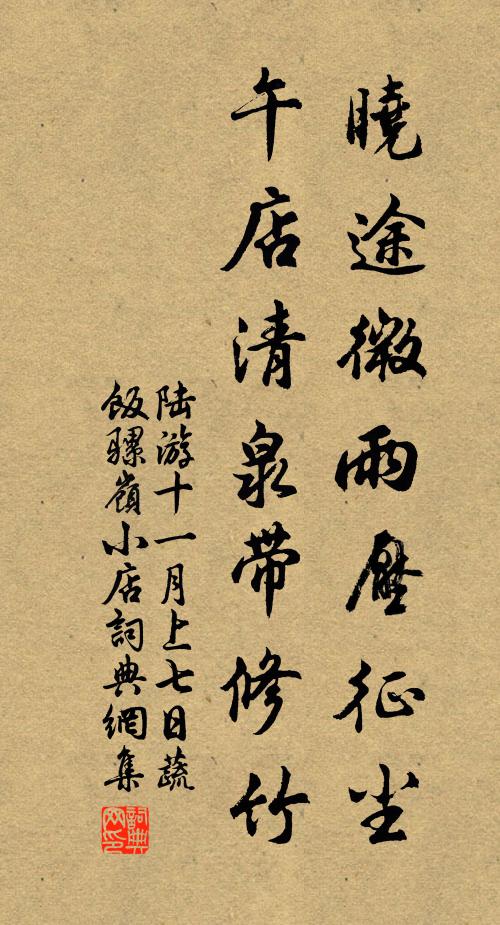 曉途微雨壓征尘
午店清泉帶修竹
陆游十一月上七日蔬
飯騾嶺小店詞典網集
詞典网印